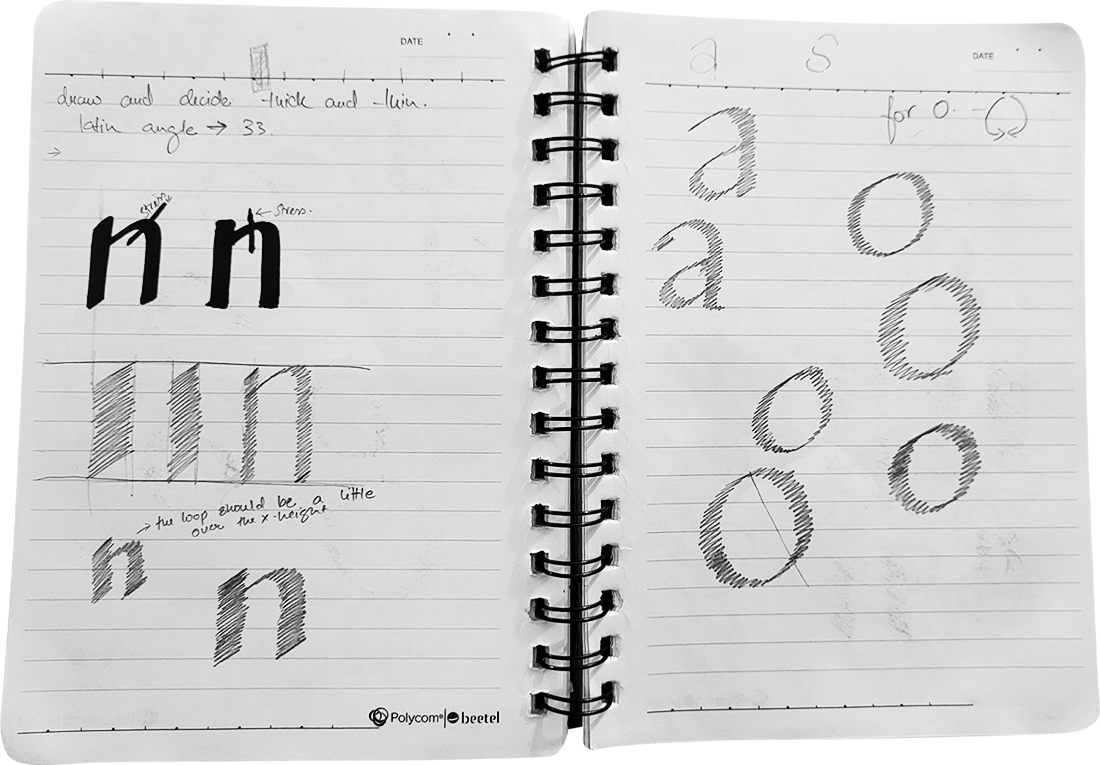 DATE
draw and decide thick and thin.
latin angle → 33.
→
n stress
n ← stress.
n
→ the loop should be a little
over the x-height
n
n
Polycom® | beetel
a s
DATE
for o. -
a
o
a
o
o
o
o